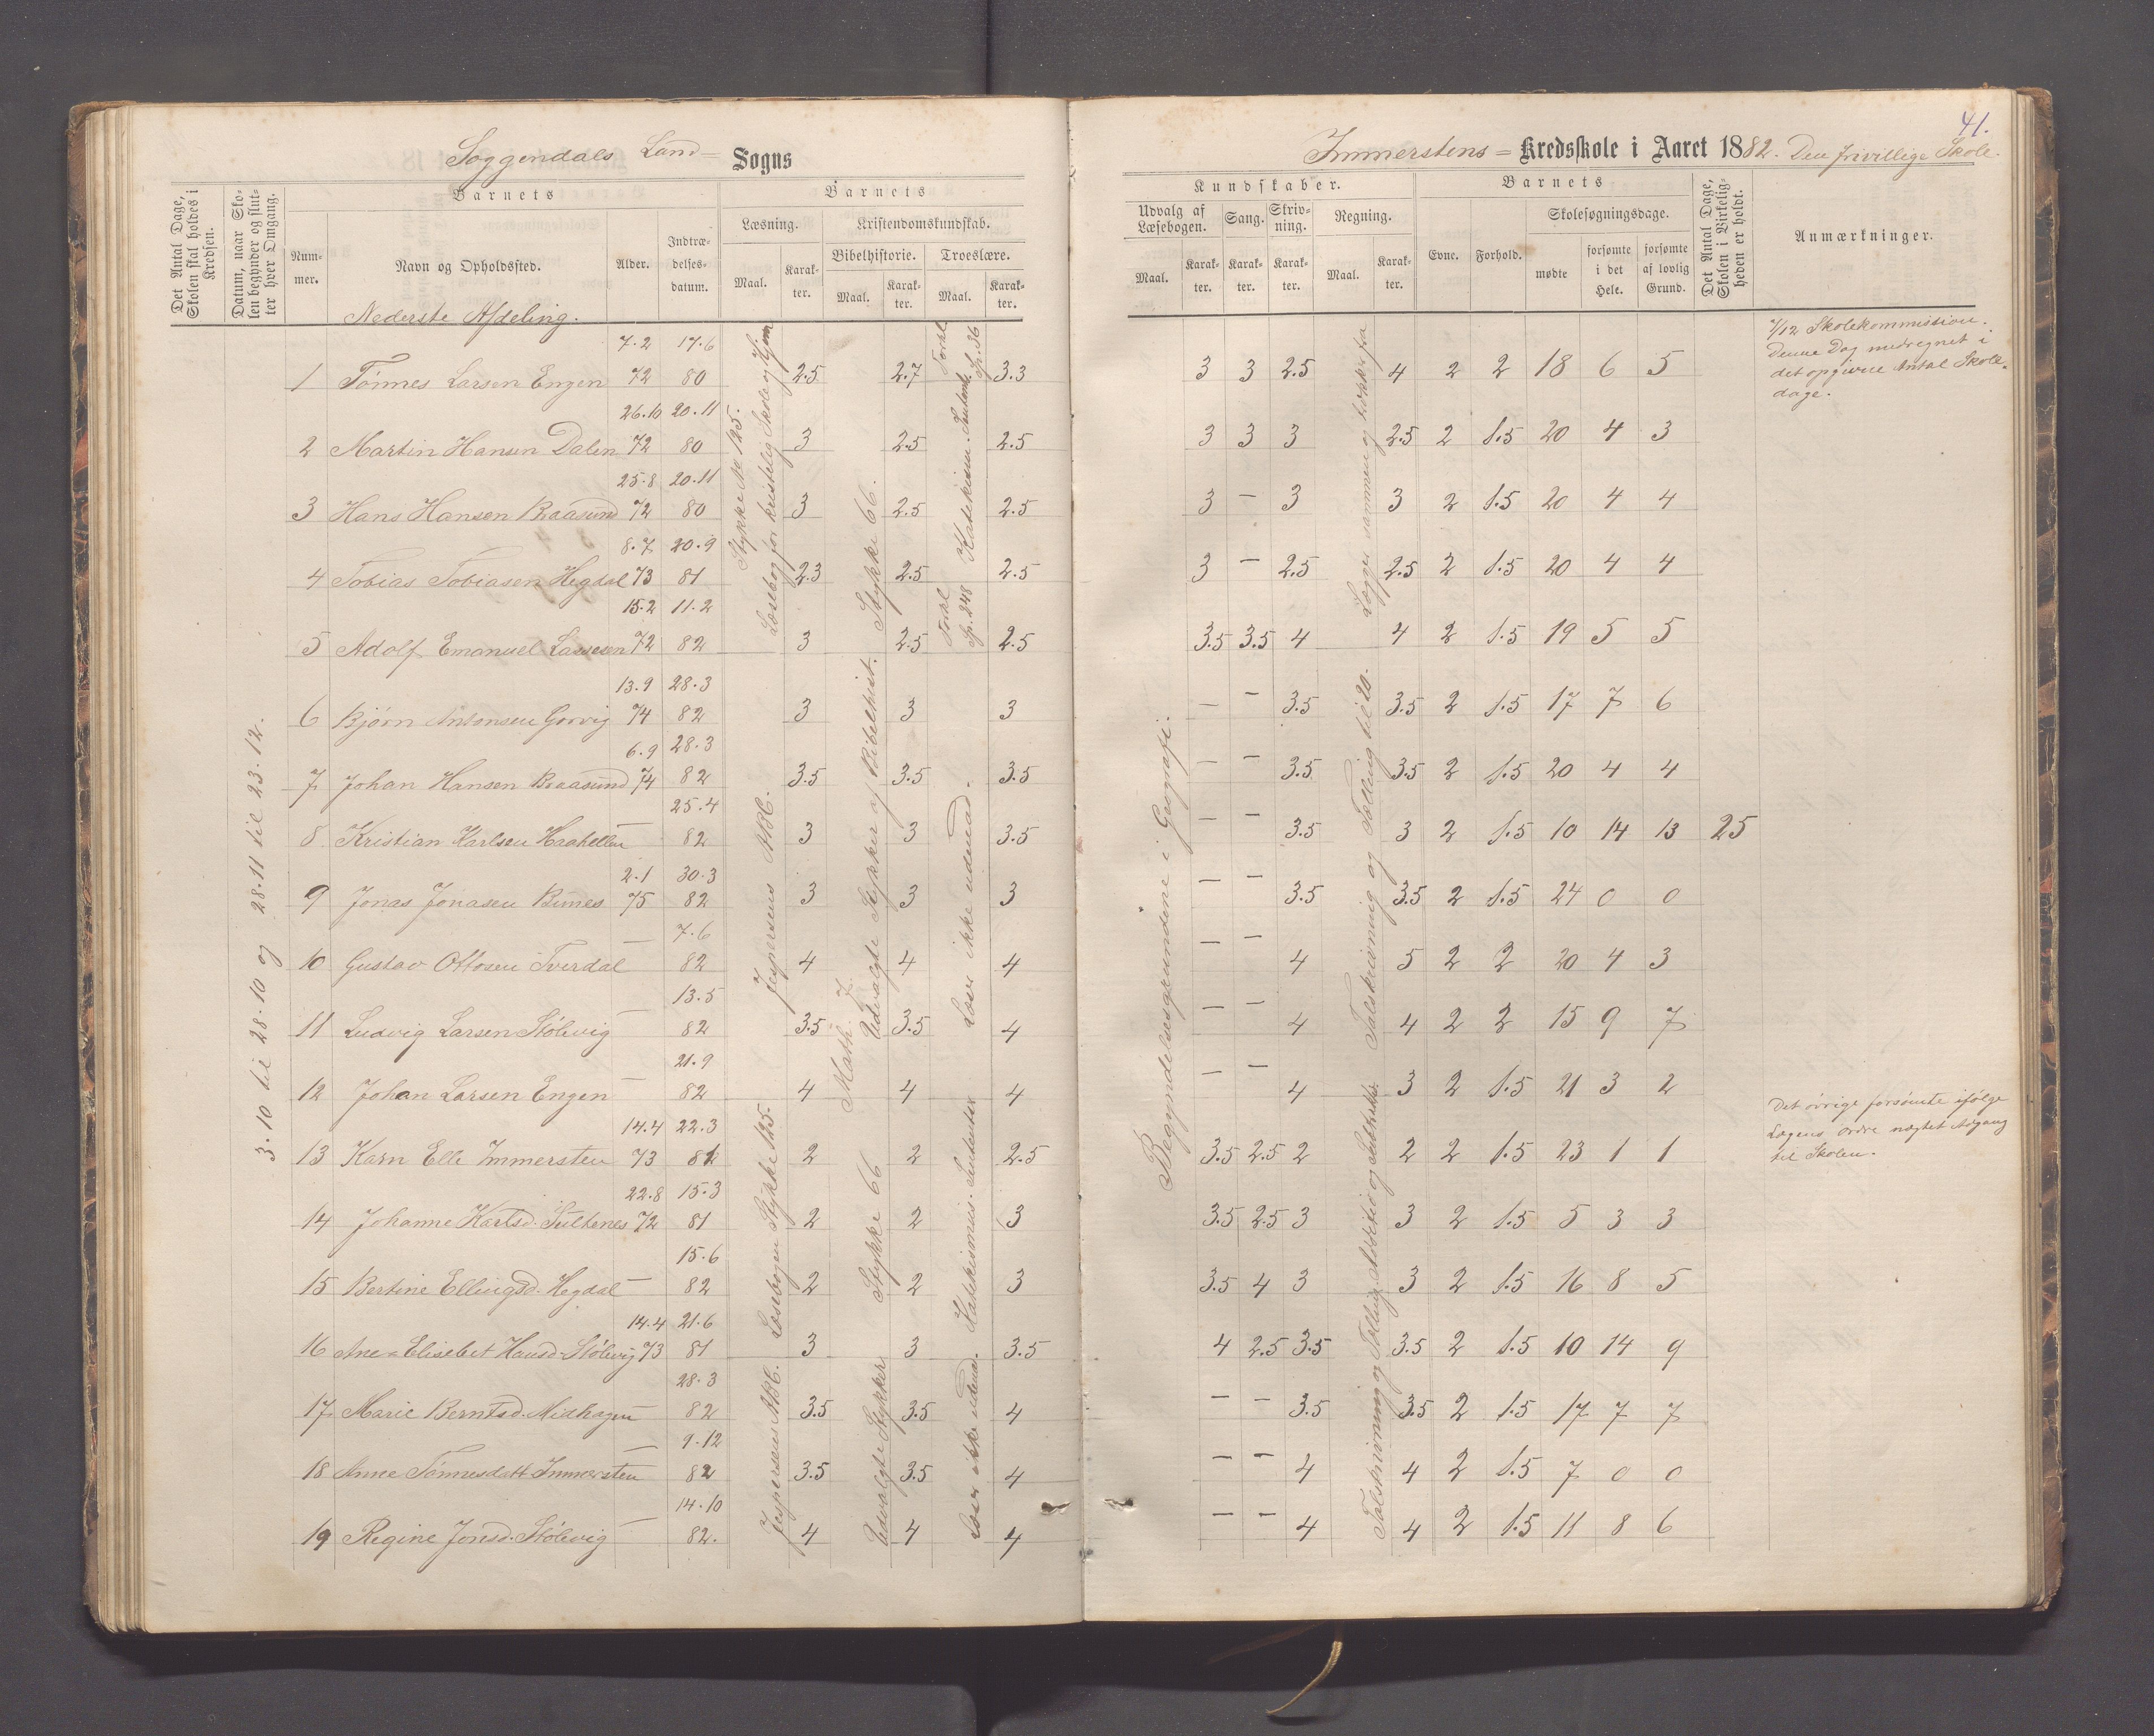 41.
Soggendals Land= Sogns
Immerstens = Kredsskole i Aaret 1882. Den frivillige Skole.
Det Antal Dage, Skolen skal holdes i Kredsen.
Datum, naar Skolen begynder og slutter hver Omgang.
Barnets
Nummer.
Navn og Opholdssted.
Alder.
Indtrædelsesdatum.
Barnets
Læsning.
Maal.
Karakter.
Kristendomskundskab.
Bibelhistorie.
Maal.
Karakter.
Troeslære.
Maal.
Karakter.
Kundskaber.
Udvalg af Læsebogen.
Maal.
Karakter.
Sang.
Karakter.
Skrivning.
Karakter.
Regning.
Maal.
Karakter.
Barnets
Evne.
Forhold.
Skolesøgningsdage.
mødte
forsømte i det Hele.
forsømte af lovlig Grund.
Det Antal Dage, Skolen i Virkeligheden er holdt.
Anmærkninger.
Nederste Afdeling.
3.10 til 28.10 og 28.11 til 23.12.
1 Tønnes Larsen Engen 7.2 72 17.6 80 2.5 2.7 3.3 3 3 2.5 4 2 2 18 6 5
2 Martin Hansen Dalen 26.10 72 20.11 80 3 2.5 2.5 3 3 3 2.5 2 1.5 20 4 3
3 Hans Hansen Raasund 25.8 72 20.11 80 3 2.5 2.5 3 — 3 3 2 1.5 20 4 4
4 Tobias Tobiasen Hegdal 8.7 73 20.9 81 2.3 2.5 2.5 3 — 2.5 2.5 2 1.5 20 4 4
5 Adolf Emanuel Lassesen 15.2 72 11.2 82 3 2.5 2.5 3.5 3.5 4 4 2 1.5 19 5 5
6 Bjørn Antonsen 13.9 74 28.3 82 3 3 3 — — 3.5 3.5 2 1.5 17 7 6
7 Johan Hansen Raasund 6.9 74 28.3 82 3.5 3.5 3.5 — — 3.5 3.5 2 1.5 20 4 4
8 Kristian Karlsen — 25.4 82 3 3 3.5 — — 3.5 3 2 1.5 10 14 13 25
9 Jonas Jonasen 2.1 75 30.3 82 3 3 3 — — 3.5 3.5 2 1.5 24 0 0
10 Gustav Ottosen Tverdal — 7.6 82 4 4 4 — — 4 5 2 2 20 4 3
11 Ludvig Larsen Stølevig — 13.5 82 3.5 3.5 4 — — 4 4 2 2 15 9 7
12 Johan Larsen Engen — 21.9 82 4 4 4 — — 4 3 2 1.5 21 3 2
13 Karn Elle Immersten 14.4 73 22.3 81 2 2 2.5 3.5 2.5 2 2 2 1.5 23 1 1
14 Johanne Karlsd. 22.8 72 15.3 81 2 2 3 3.5 2.5 3 3 2 1.5 5 3 3
15 Bertine Ellingsd. Hegdal — 15.6 82 2 2 3 3.5 4 3 3 2 1.5 16 8 5
16 Ane Elisebet Hansd. Stølevig 14.4 73 21.6 81 3 3 3.5 4 2.5 3.5 3.5 2 1.5 10 14 9
17 Marie Berntsd. Midhagen — 28.3 82 3.5 3.5 4 — — 3.5 3.5 2 1.5 17 7 7
18 Anne Tønnesdatt Immersten — 9.12 82 3.5 3.5 4 — — 4 4 2 1.5 7 0 0
19 Regine Jonsd. Stølevig — 14.10 82. 4 4 4 — — 4 4 2 1.5 11 8 6
Stykke No 125.
Læsebog for kristelig Skole og Hjem
Jespersens ABC.
Læsebogen Stykke 125.
Jespersens ABC.
Stykke 66.
Udvalgte Stykker af Bibelhist.
Math. 7.
Stykke 66
Udvalgte Stykker
Forkl. Sp. 36
Forkl Sp. 248
Læser ikke udenad.
Katekismus.
Læser ikke udenad.
Begyndelsesgrundene i Geografi.
Lægger sammen og trækker fra
Talskrivning og Tælling til 20.
Talskrivning og Tælling, Addition og Subtrakt.
7/12 Skolekommission.
Denne Dag medregnet i
det opgivne Antal Skole-
dage.
Det øvrige forsømte ifølge
Lægens Ordre nægtet Adgang
til Skolen.